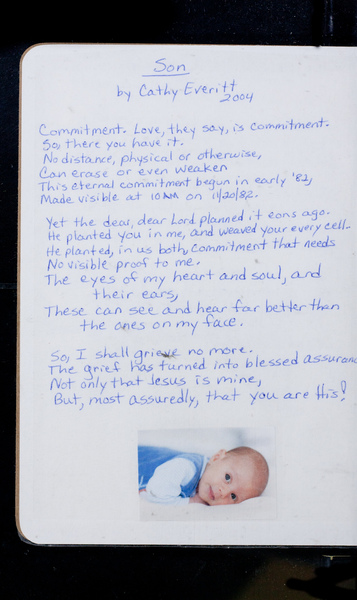 Son
by Cathy Everitt
2004
Commitment. Love, they say, is commitment.
So, there you have it.
No distance, physical or otherwise,
Can erase or even weaken
This eternal commitment begun in early '82,
Made visible at 10 AM on 11/20/82.
Yet the dear, dear Lord planned it eons ago.
He planted you in me, and weaved your every cell.
He planted, in us both, commitment that needs
No visible proof to me.
The eyes of my heart and soul, and
their ears,
These can see and hear far better than
the ones on my face.
So, I shall grieve no more.
The grief has turned into blessed assuranc
Not only that Jesus is mine,
But, most assuredly, that you are His!